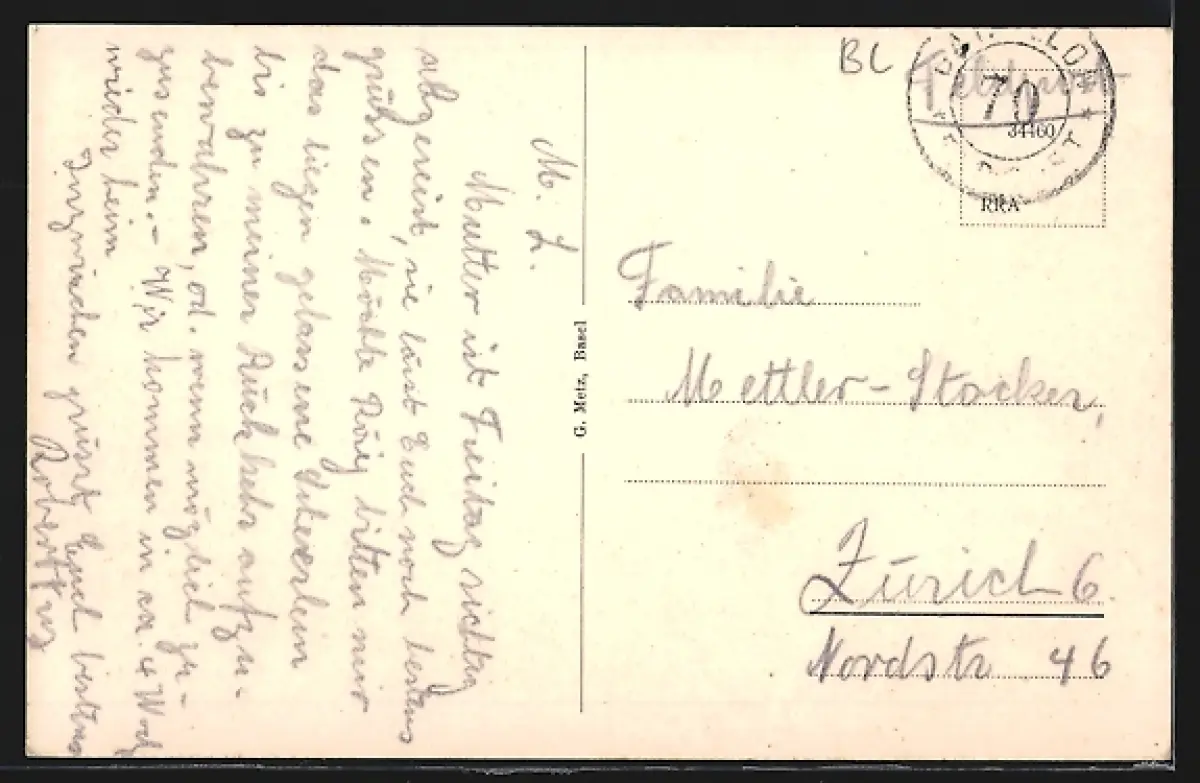 M. L.
Mutter ist Freitag richtig
abgereist, sie lässt Euch noch bestens
grüssen. Möchte Rösy bitten mir
das liegen gelassene
bis zu meiner Rückkehr aufzu-
bewahren, od. wenn möglich zu-
zusenden. - Wir kommen in ca. 4 Woch
wieder heim
Inzwischen grüsst Euch bestens
Robert
G. Metz, Basel
BL
Feldpost
70
34460
RRA
Familie
Mettler-Stocker,
Zürich 6.
Nordstr 46